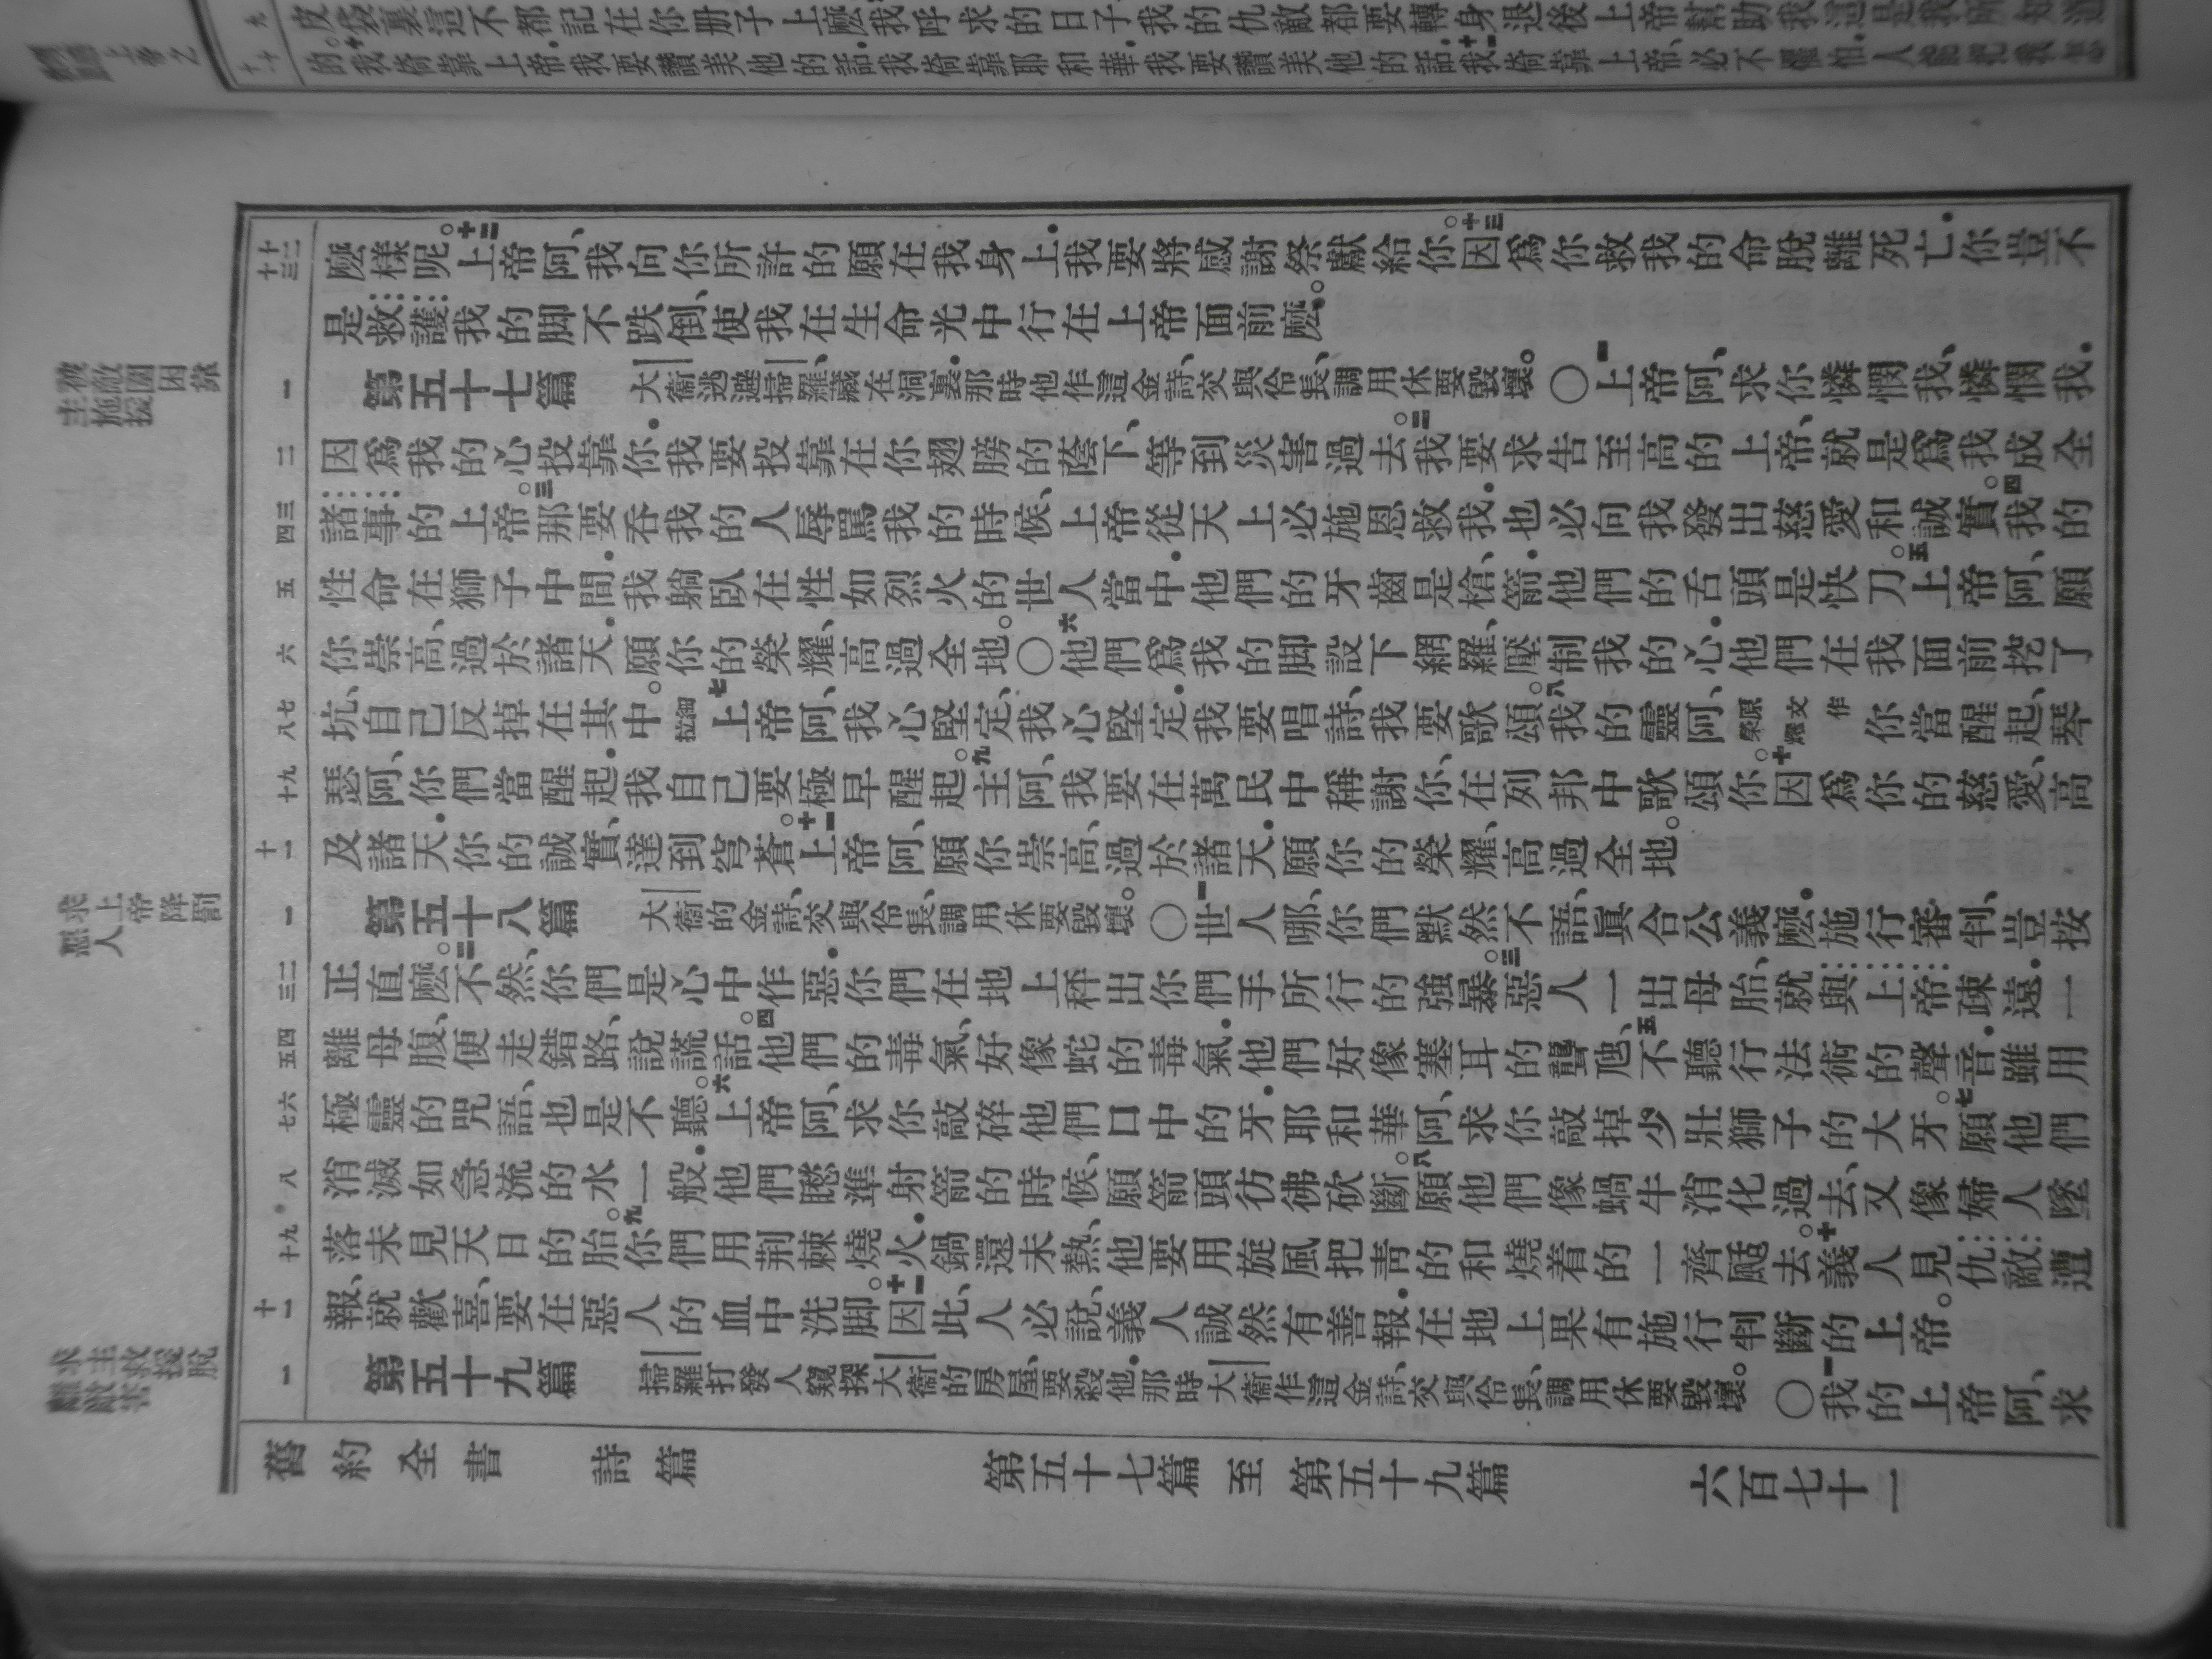 皮袋裏這不都記在你册子上麽我呼求的日子我的仇敵都要轉身退後上帝幫助我這是我所知道
的。十我倚靠上帝我要讚美他的話我倚靠耶和華我要讚美他的話。十一我倚靠上帝、必不懼怕人能把我怎
十二
十三
麽樣呢。十二上帝阿、我向你所許的願在我身上．我要將感謝祭獻給你。十三因爲你救我的命脫離死亡．你豈不
是救護我的脚不跌倒、使我在生命光中行在上帝面前麽。
被敵圍困靠
主施援
一
第五十七篇 大衞逃避掃羅、藏在洞裏．那時他作這金詩、交與伶長、調用休要毀壞。 〇一上帝阿、求你憐憫我、憐憫我．
二
因爲我的心投靠你．我要投靠在你翅膀的蔭下、等到災害過去。二我要求告至高的上帝、就是爲我成全
三
四
諸事的上帝。三那要吞我的人辱罵我的時候、上帝從天上必施恩救我．也必向我發出慈愛和誠實。四我的
五
性命在獅子中間．我躺臥在性如烈火的世人當中．他們的牙齒是槍、箭．他們的舌頭是快刀。五上帝阿、願
六
你崇高、過於諸天．願你的榮耀、高過全地。〇六他們爲我的脚設下網羅、壓制我的心．他們在我面前挖了
七
八
坑、自己反掉在其中。細拉七上帝阿、我心堅定、我心堅定．我要唱詩、我要歌頌。八我的靈阿、原文作榮耀你當醒起、琴
九
十
瑟阿、你們當醒起．我自己要極早醒起。九主阿、我要在萬民中稱謝你、在列邦中歌頌你。十因爲你的慈愛、高
十一
及諸天．你的誠實、達到穹蒼。十一上帝阿、願你崇高、過於諸天．願你的榮耀、高過全地。
求上帝降罰
惡人
一
第五十八篇 大衞的金詩、交與伶長、調用休要毀壞。 〇一世人哪、你們默然不語、眞合公義麽．施行審判、豈按
二
三
正直麽。二不然、你們是心中作惡．你們在地上秤出你們手所行的強暴。三惡人一出母胎、就與上帝疎遠．一
四
五
離母腹、便走錯路、說謊話。四他們的毒氣、好像蛇的毒氣．他們好像塞耳的聾虺、五不聽行法術的聲音．雖用
六
七
極靈的咒語、也是不聽。六上帝阿、求你敲碎他們口中的牙．耶和華阿、求你敲掉少壯獅子的大牙。七願他們
八
消滅如急流的水一般．他們瞅準射箭的時候、願箭頭彷彿砍斷。八願他們像蝸牛消化過去、又像婦人墜
九
十
落未見天日的胎。九你們用荆棘燒火．鍋還未熱、他要用旋風把靑的和燒着的一齊颳去。十義人見仇敵遭
十一
報、就歡喜、要在惡人的血中洗脚。十一因此、人必說、義人誠然有善報．在地上果有施行判斷的上帝。
求主救援脫
離敵害
一
第五十九篇 掃羅打發人窺探大衞的房屋、要殺他．那時大衞作這金詩、交與伶長、調用休要毀壞。 〇一我的上帝阿、求
舊約全書 詩篇 第五十七篇至第五十九篇 六百七十一